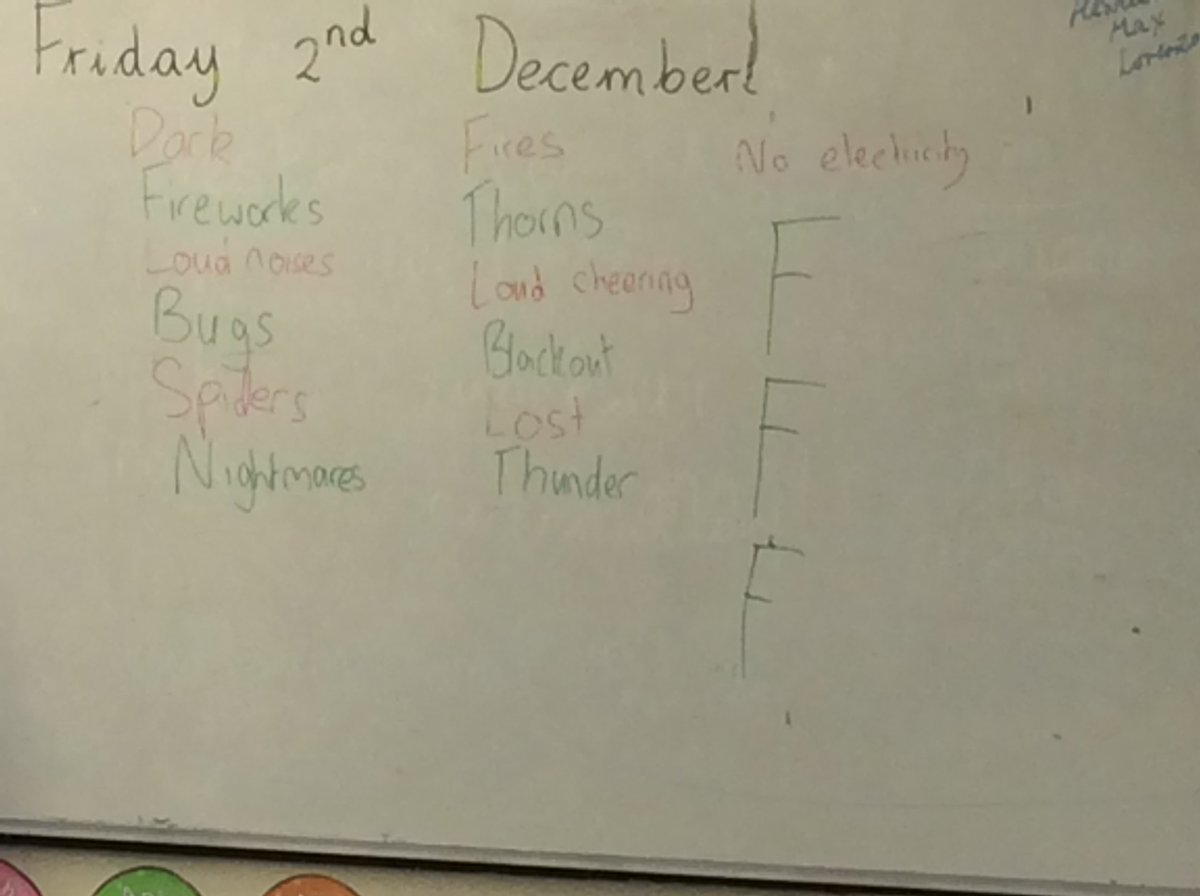 Friday 2nd December!
Max
Lorenzo
Dark
Fireworks
Loud noises
Bugs
Spiders
Nightmares
Fires
Thorns
Loud cheering
Blackout
Lost
Thunder
No electricity
F
F
F